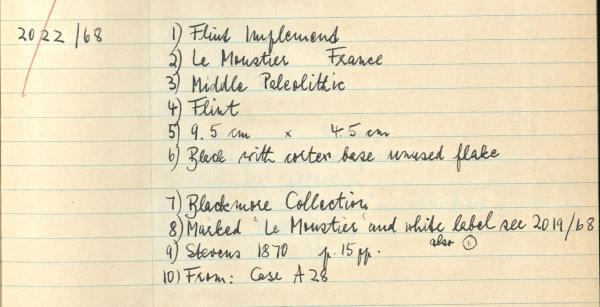 2022/68 1) Flint Implement
2) Le Moustier France
3) Middle Paleolithic
4) Flint
5) 9.5 cm x 4.5 cm
6) Black with cortex base unused flake
7) Blackmore Collection
8) Marked "Le Moustier" and white label see 2019/68
also ①
9) Stevens 1870 p. 15 pp.
10) From: Case A28